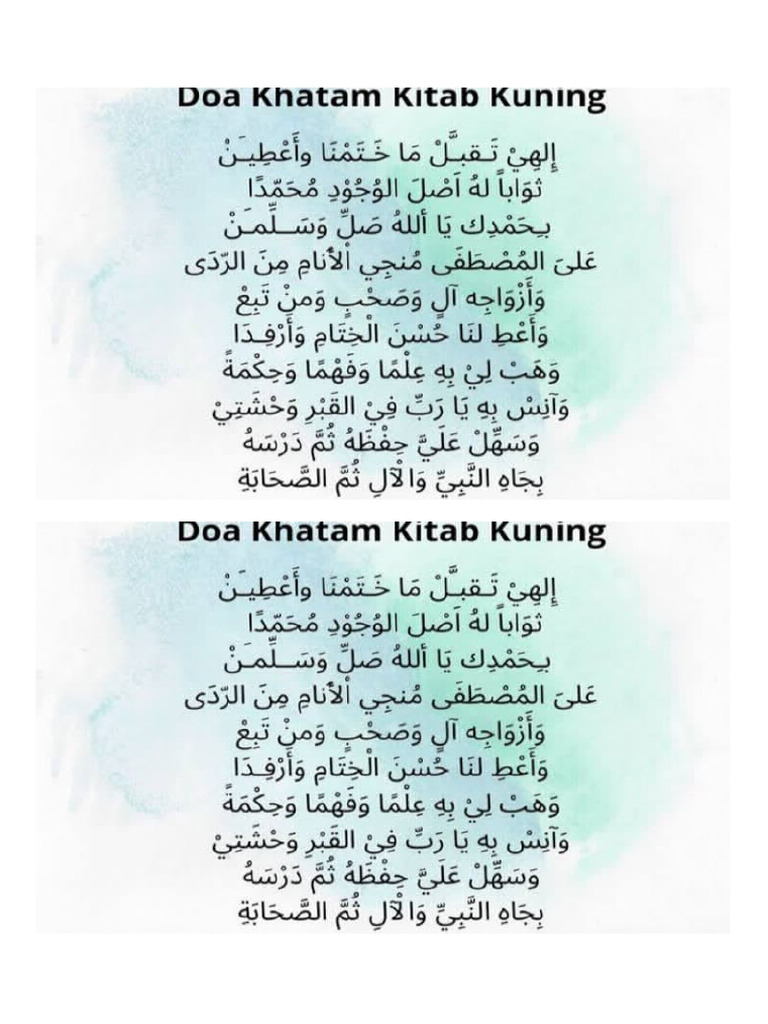 Doa Khatam Kitab Kuning
إِلهِيْ تَـقبـَّلْ مَا خَـتَمْنَا وأَعْطِيـَنْ
ثوَاباً لهُ اَصْلَ الوُجُوْدِ مُحَمّدًا
بـِحَمْدِك يَا أللهُ صَلِّ وَسَــلِّمـَنْ
عَلىَ المُصْطَفَى مُنجِي اْلأَنامِ مِنَ الرّدَى
وَأَزْوَاجِه آلٍ وَصَحْبٍ وَمنْ تَبِعْ
وَأَعْطِ لنَا حُسْنَ الْخِتَامِ وَأَرْفِـدَا
وَهَبْ لِيْ بِهِ عِلْمًا وَفَهْمًا وَحِكْمَةً
وَآنِسْ بِهِ يَا رَبِّ فِيْ القَبْرِ وَحْشَتِيْ
وَسَهِّلْ عَلَيَّ حِفْظَهُ ثُمَّ دَرْسَهُ
بِجَاهِ النَّبِيِّ وَالْآلِ ثُمَّ الصَّحَابَةِ
Doa Khatam Kitab Kuning
إِلهِيْ تَـقبـَّلْ مَا خَـتَمْنَا وأَعْطِيـَنْ
ثوَاباً لهُ اَصْلَ الوُجُوْدِ مُحَمّدًا
بـِحَمْدِك يَا أللهُ صَلِّ وَسَــلِّمـَنْ
عَلىَ المُصْطَفَى مُنجِي اْلأَنامِ مِنَ الرّدَى
وَأَزْوَاجِه آلٍ وَصَحْبٍ وَمنْ تَبِعْ
وَأَعْطِ لنَا حُسْنَ الْخِتَامِ وَأَرْفِـدَا
وَهَبْ لِيْ بِهِ عِلْمًا وَفَهْمًا وَحِكْمَةً
وَآنِسْ بِهِ يَا رَبِّ فِيْ القَبْرِ وَحْشَتِيْ
وَسَهِّلْ عَلَيَّ حِفْظَهُ ثُمَّ دَرْسَهُ
بِجَاهِ النَّبِيِّ وَالْآلِ ثُمَّ الصَّحَابَةِ